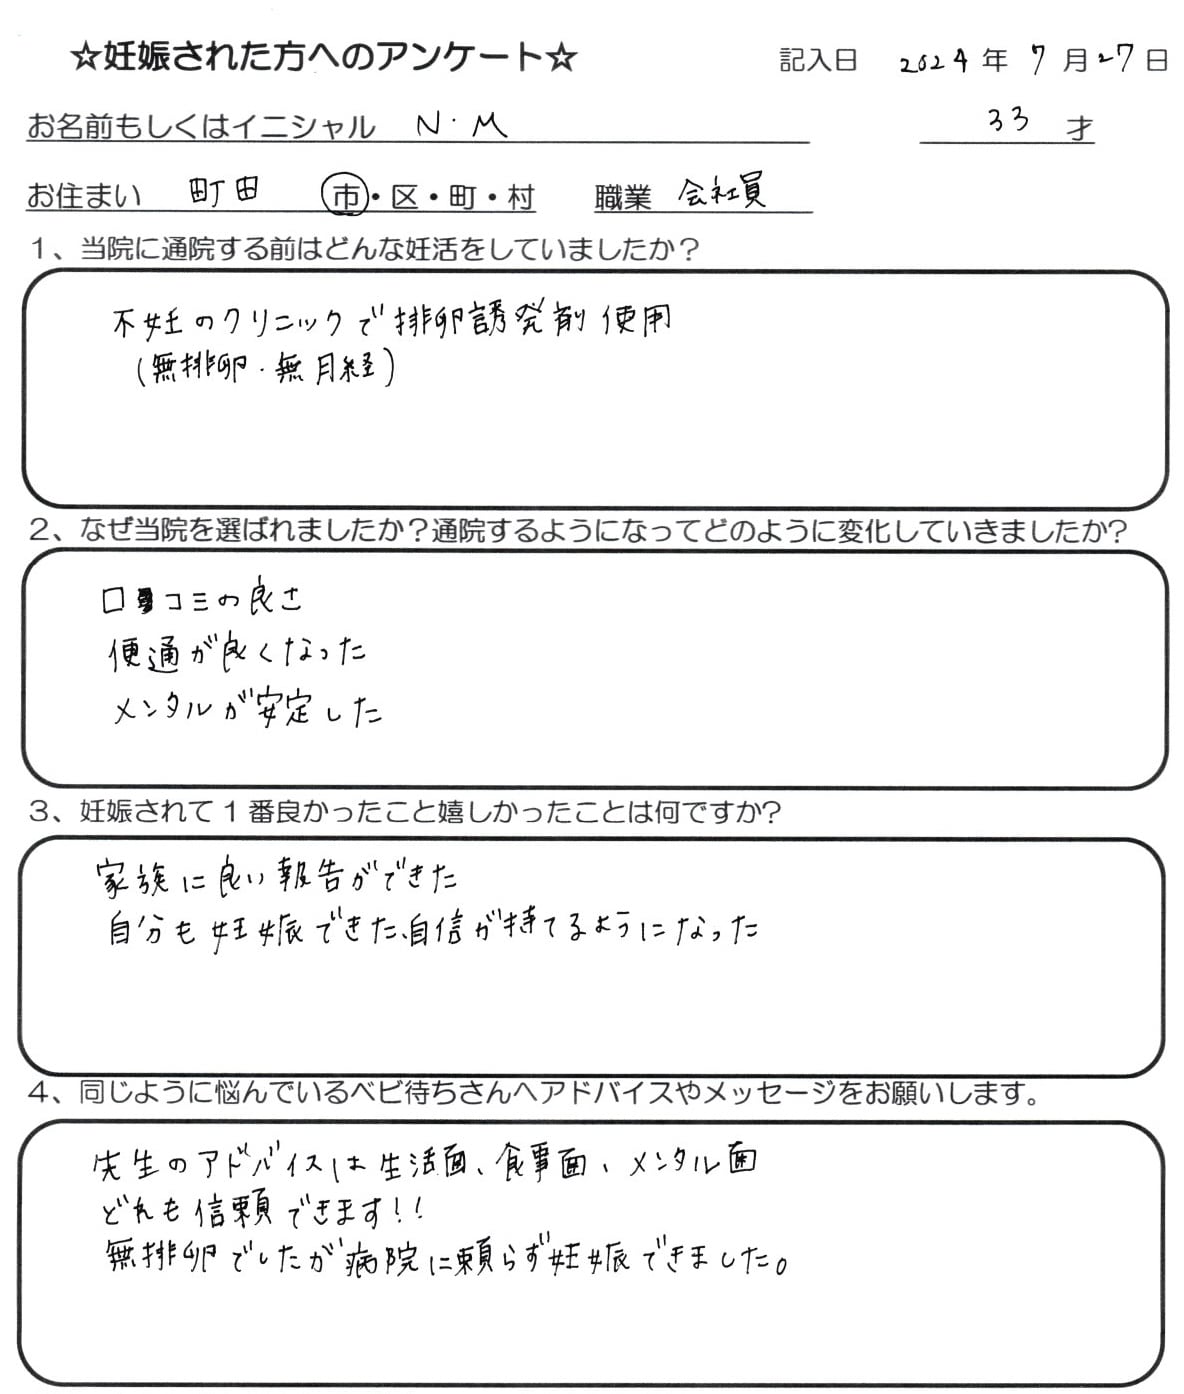 ☆妊娠された方へのアンケート☆ 記入日 2024年7月27日
お名前もしくはイニシャル N・M 33才
お住まい 町田 市・区・町・村 職業 会社員
1、当院に通院する前はどんな妊活をしていましたか？
不妊のクリニックで排卵誘発剤使用
(無排卵・無月経)
2、なぜ当院を選ばれましたか？通院するようになってどのように変化していきましたか?
口コミの良さ
便通が良くなった
メンタルが安定した
3、妊娠されて1番良かったこと嬉しかったことは何ですか?
家族に良い報告ができた
自分も妊娠できた、自信が持てるようになった
4、同じように悩んでいるベビ待ちさんへアドバイスやメッセージをお願いします。
先生のアドバイスは生活面、食事面、メンタル面
どれも信頼できます!!
無排卵でしたが病院に頼らず妊娠できました。